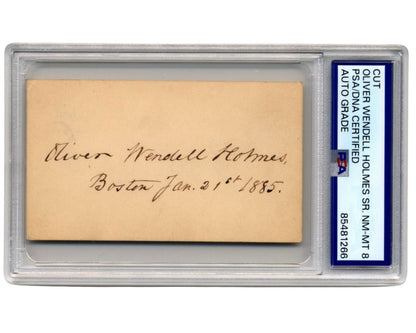 Oliver Wendell Holmes.
Boston Jan. 21st 1885.
CUT
OLIVER WENDELL HOLMES SR. NM-MT 8
PSA/DNA CERTIFIED
AUTO GRADE
PSA
85481266